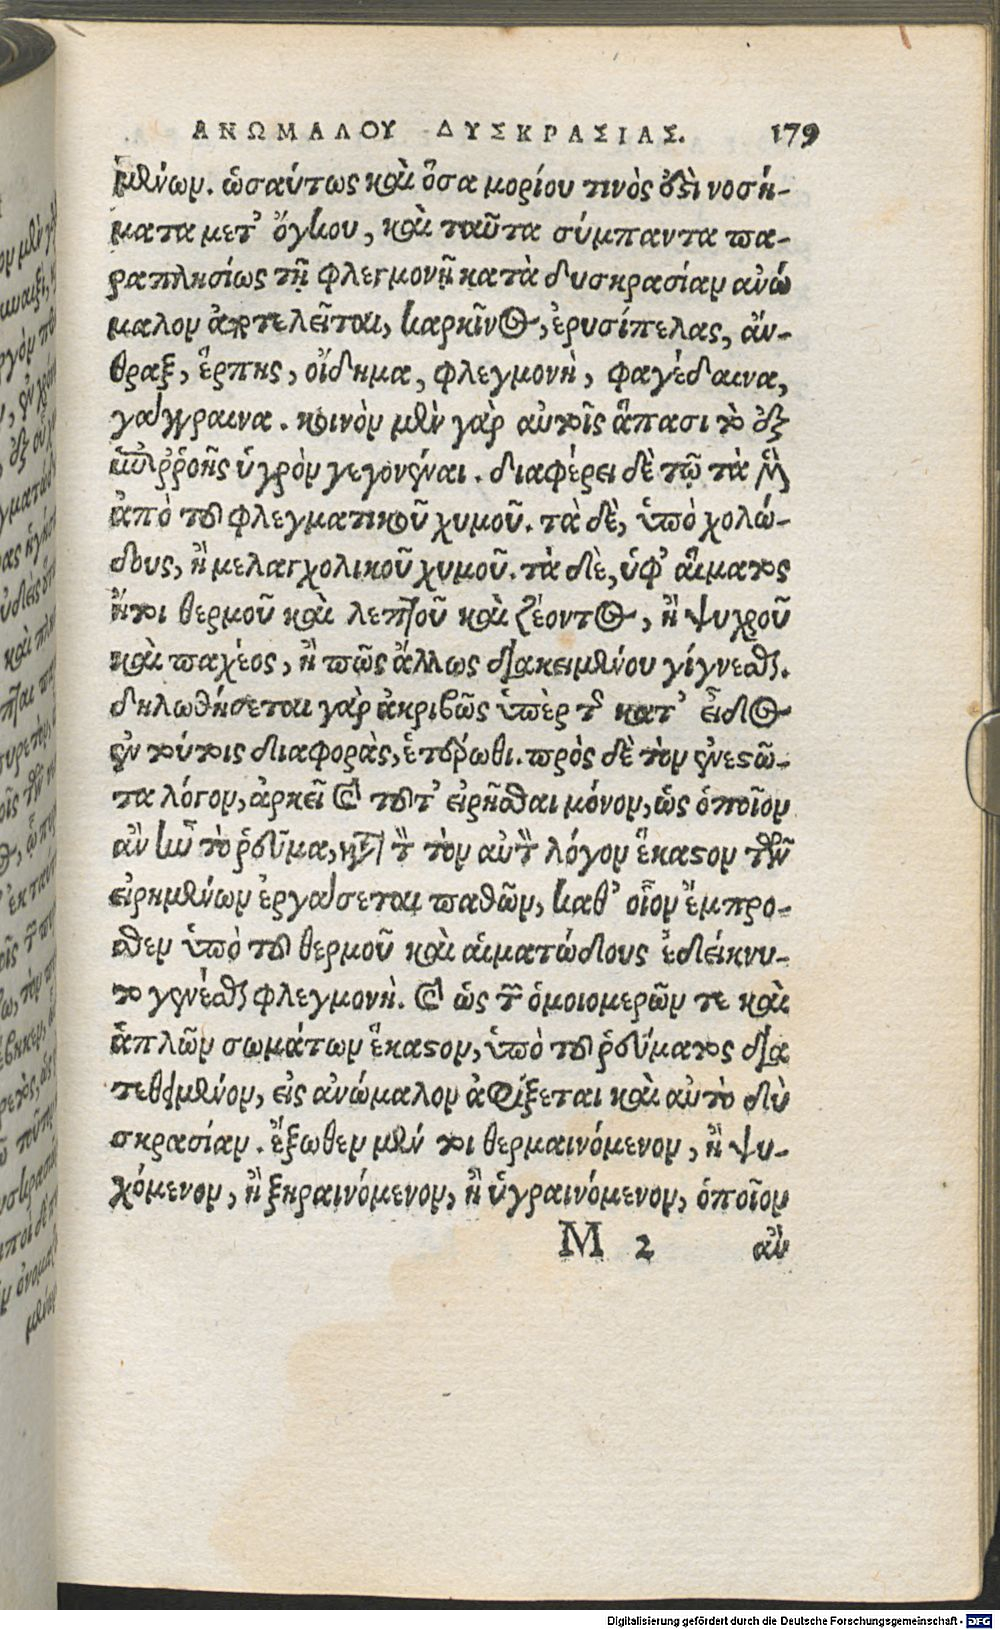 ΑΝΩΜΑΛΟΥ ΔΥΣΚΡΑΣΙΑΣ. 179
μένων. ὡσαύτως καὶ ὅσα μορίου τινὸς ἐστὶ νοσή-
ματα μετ' ὄγκου, καὶ ταῦτα σύμπαντα πα-
ραπλησίως τῇ φλεγμονῇ κατὰ δυσκρασίαν ἀνώ
μαλον ἀποτελεῖται, καρκῖνος, ἐρυσίπελας, ἄν-
θραξ, ἕρπης, οἴδημα, φλεγμονὴ, φαγέδαινα,
γάγγραινα. κοινὸν μὲν γὰρ αὐτοῖς ἅπασι τὸ ἐξ
ἐπιῤῥοῆς ὑγρὸν γεγονέναι. διαφέρει δὲ τῷ τὰ μὲν
ἀπὸ τοῦ φλεγματικοῦ χυμοῦ. τὰ δὲ, ὑπὸ χολώ-
δους, ἢ μελαγχολικοῦ χυμοῦ. τὰ δὲ, ὑφ' αἵματος
ἤτοι θερμοῦ καὶ λεπτοῦ καὶ ζέοντος, ἢ ψυχροῦ
καὶ παχέος, ἢ πῶς ἄλλως διακειμένου γίγνεσθαι.
δηλωθήσεται γὰρ ἀκριβῶς ὑπὲρ τῆς κατ' εἶδος
ἐν τούτοις διαφορὰς, ἑτέρωθι. πρὸς δὲ τὸν ἐνεστῶ-
τα λόγον, ἀρκεῖ καὶ τοῦτ' εἰρῆσθαι μόνον, ὡς ὁποῖον
ἂν ᾖ τὸ ῥεῦμα, κατὰ τὸν αὐτὸν λόγον ἕκαστον τῶν
εἰρημένων ἐργάσεται παθῶν, καθ' οἷον ἔμπρο-
σθεν ὑπὸ τοῦ θερμοῦ καὶ αἱματώδους ἐδείκνυ-
το γενέσθαι φλεγμονὴ. καὶ ὡς τῶν ὁμοιομερῶν τε καὶ
ἁπλῶν σωμάτων ἕκαστον, ὑπὸ τοῦ ῥεύματος δια
τεθειμένον, εἰς ἀνώμαλον ἀφίξεται καὶ αὐτὸ δυ
σκρασίαν. ἔξωθεν μέν τοι θερμαινόμενον, ἢ ψυ-
χόμενον, ἢ ξηραινόμενον, ἢ ὑγραινόμενον, ὁποῖον
M 2 ἂν
Digitalisierung gefördert durch die Deutsche Forschungsgemeinschaft - DFG